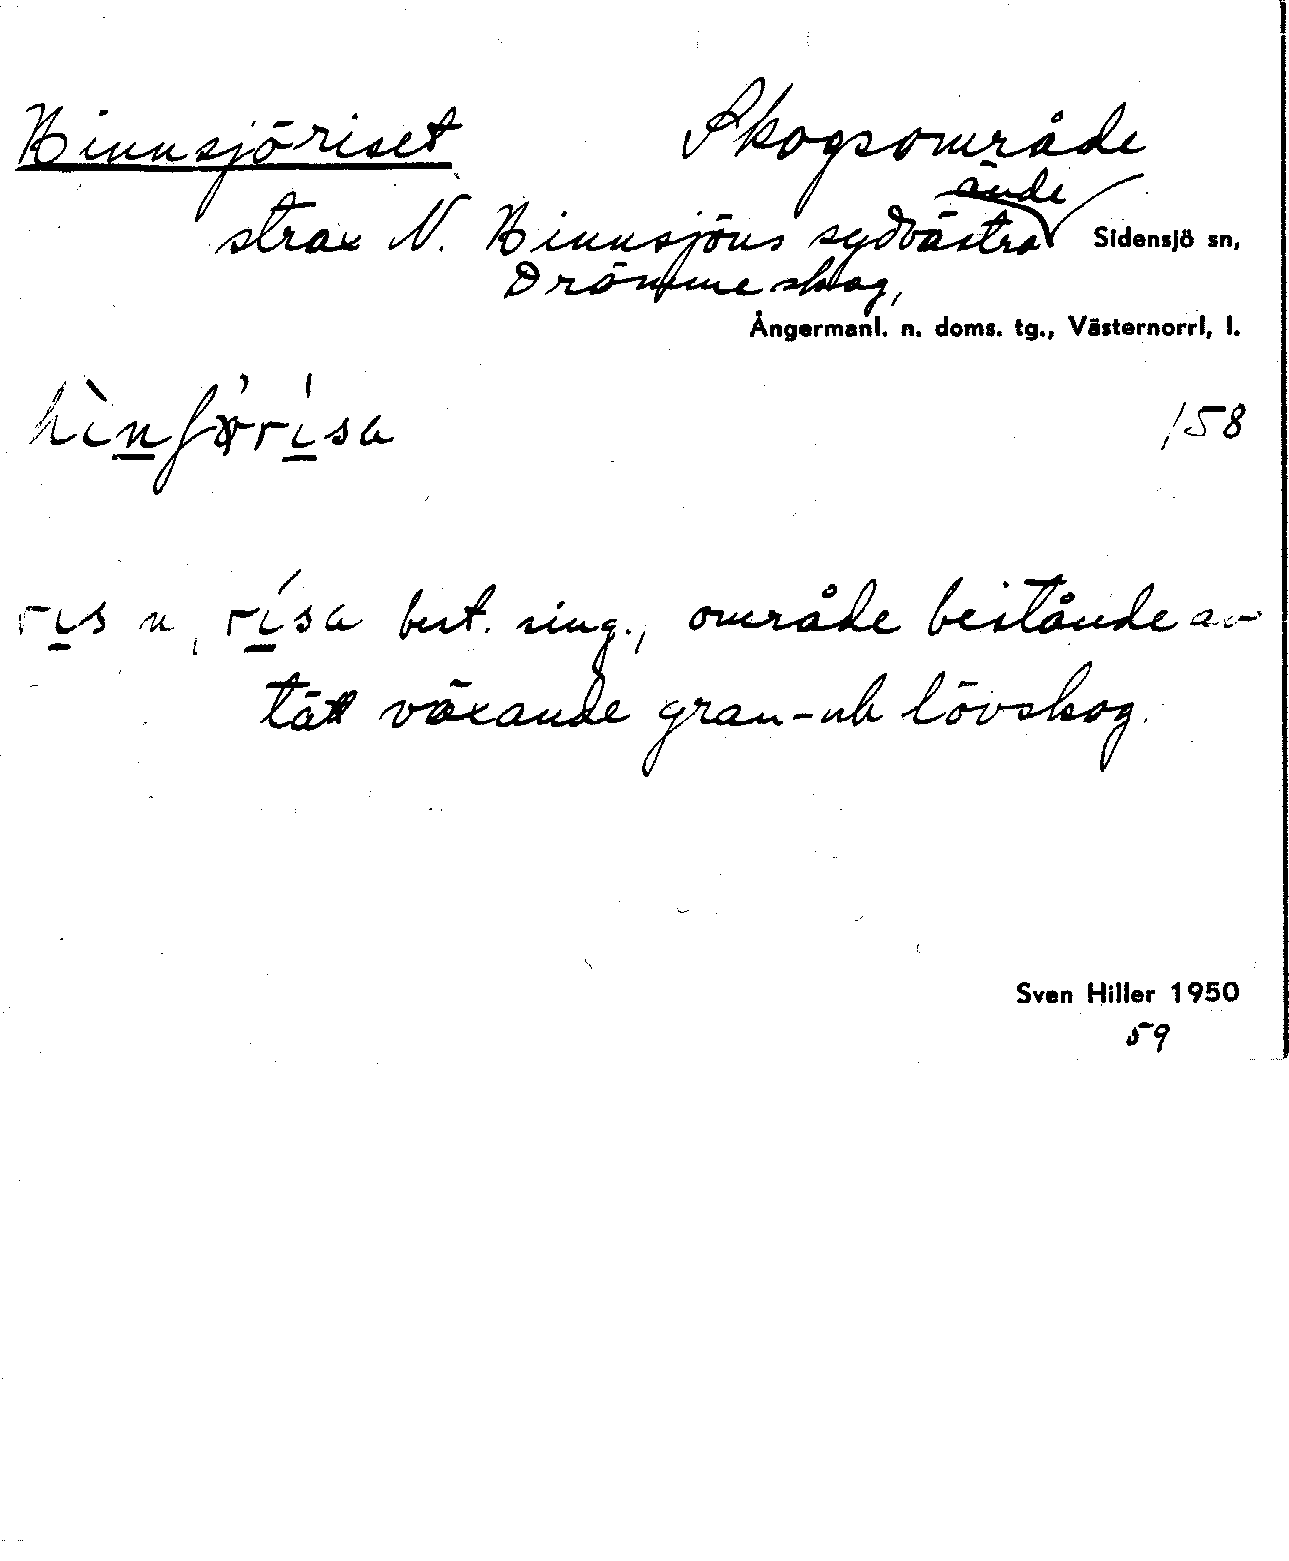 Hinnsjöriset Skogsområde
strax N. Hinnsjöns sydvästra ände Sidensjö sn,
Drömmeskog,
Ångermanl. n. doms. tg., Västernorrl, l.
158
ris n, rísa best. sing., område bestånde av
tätt växande gran-och lövskog.
Sven Hiller 1950
59